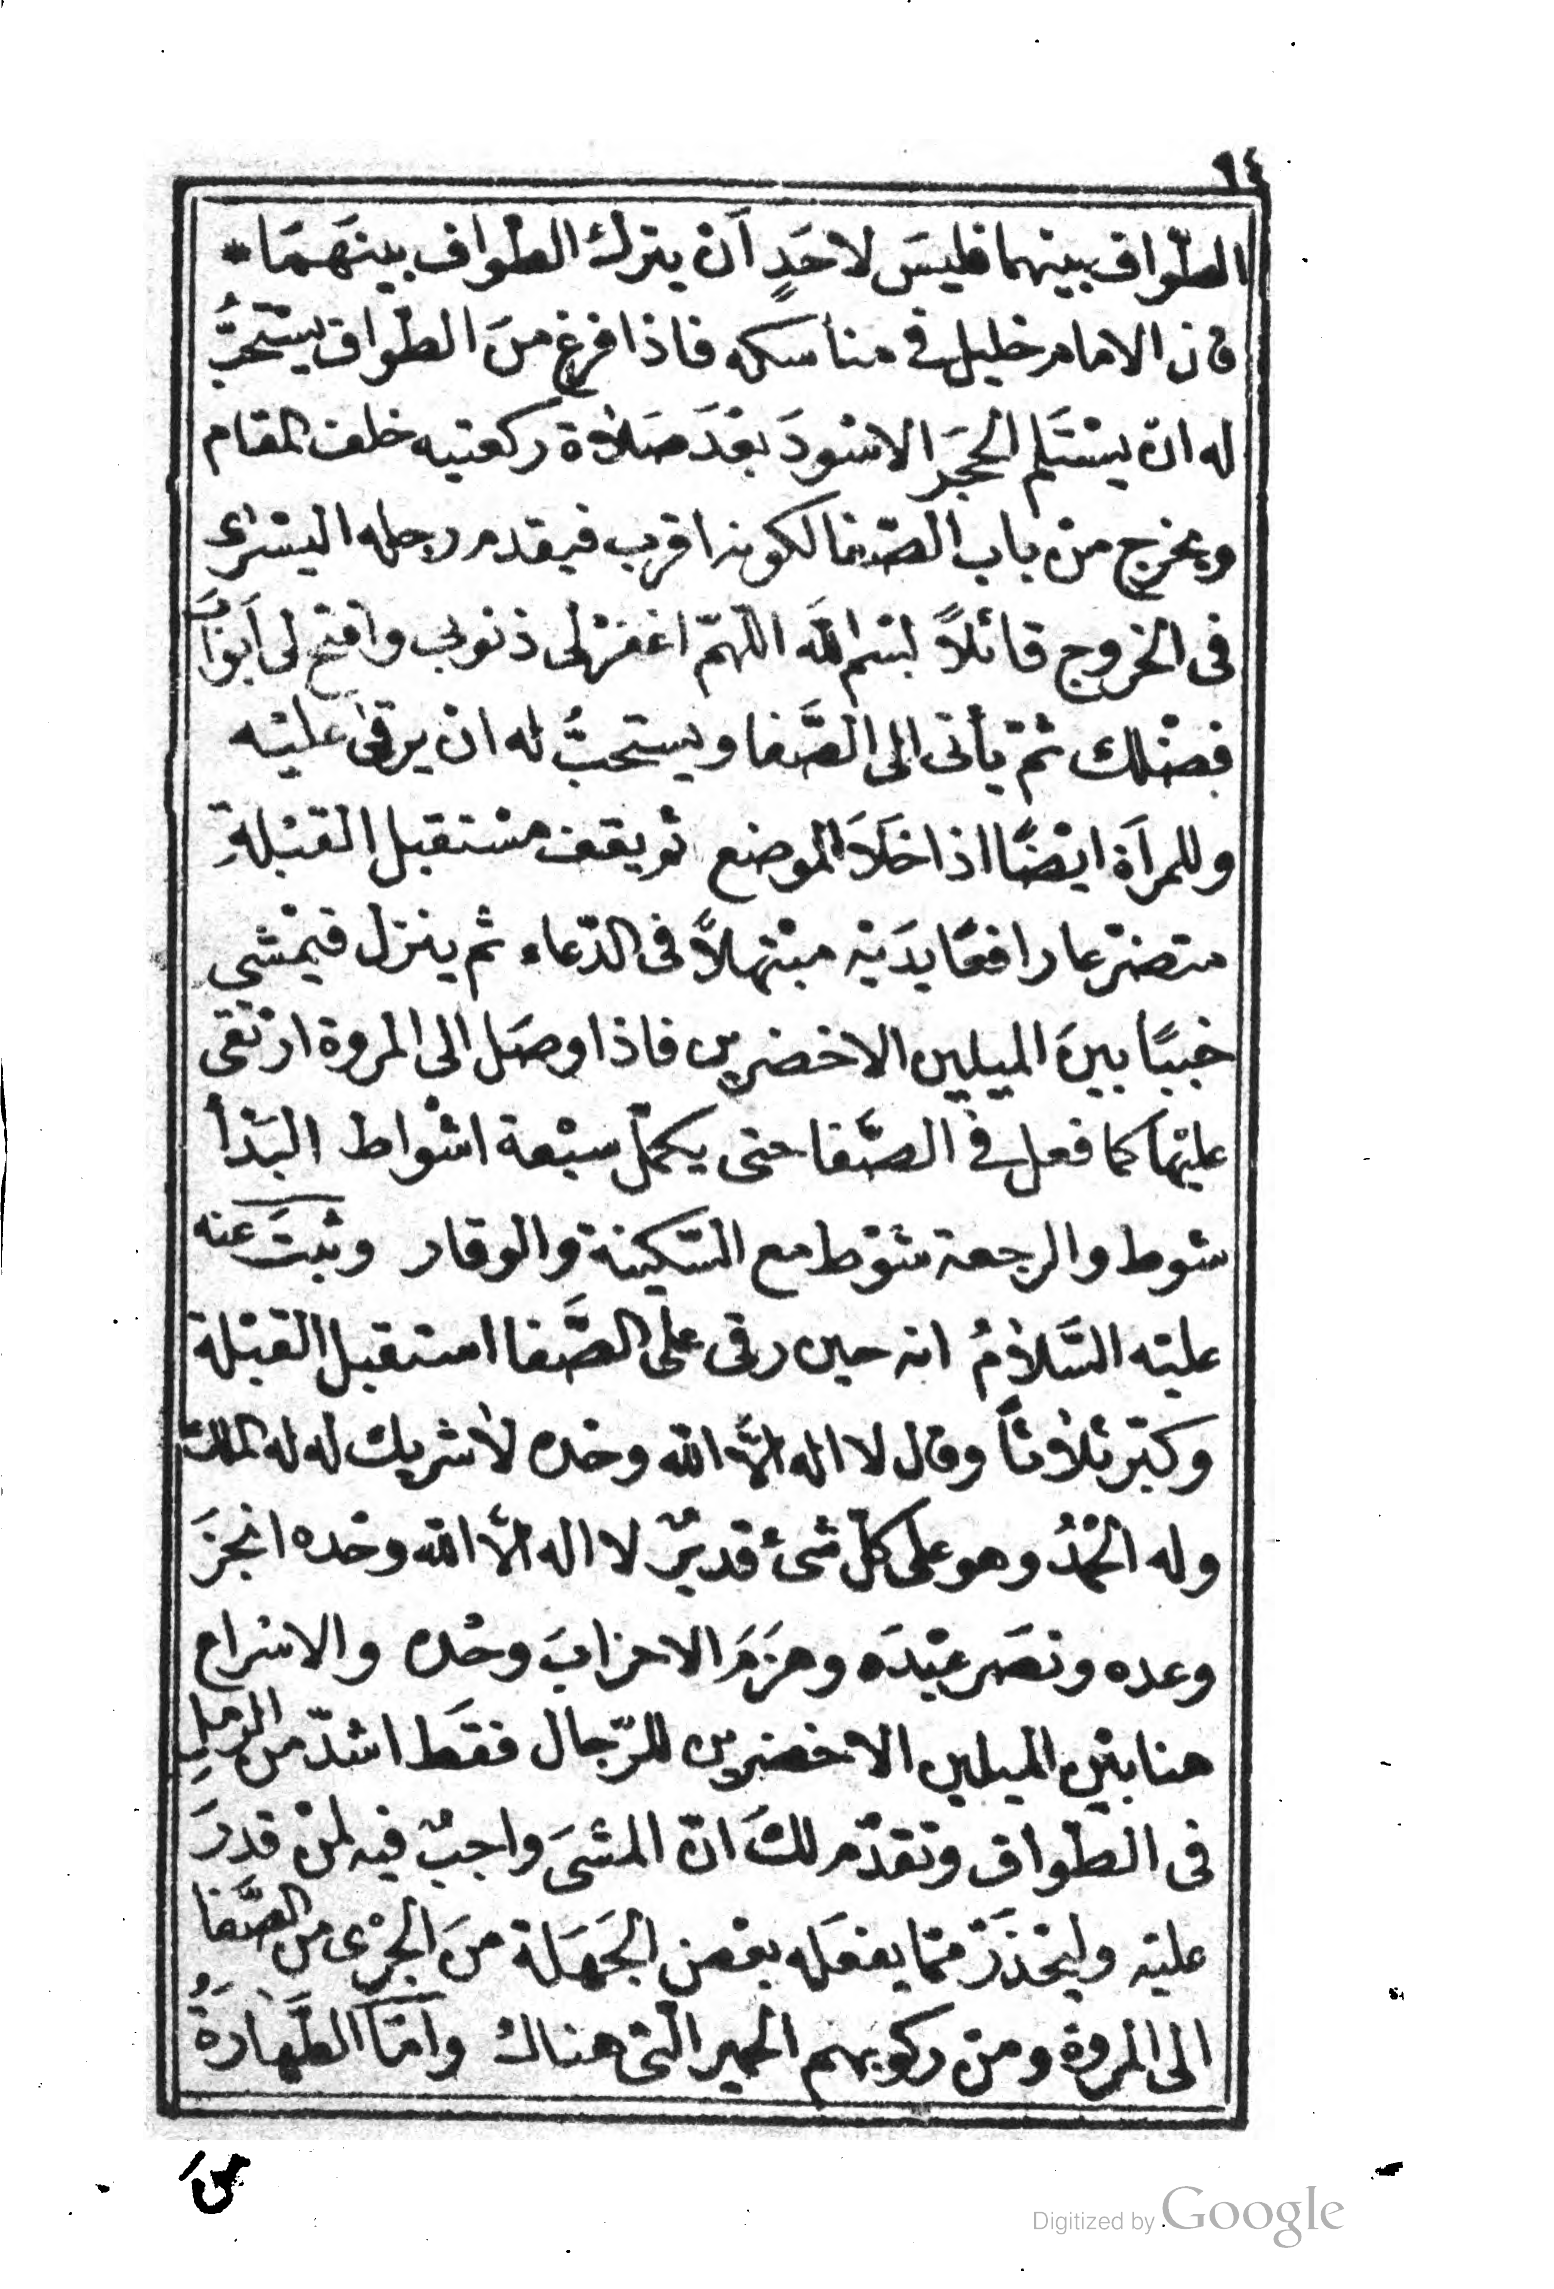 ٩٤
الطّواف بينهما فليسَ لاحَدٍ اَن يترك الطواف بينَهمَا *
قال الامام خليل في مناسكه فاذا فرغ منَ الطواف يسْتحبُّ
له انْ يسْتَلم الحجَر الاسْودَ بعْدَ صَلاة ركعتيه خلف المقام
ويخرج منْ باب الصّفا لكونه اقرب فيقدم رجله اليسْرى
فى الخروج قائلاً بسْم الله اللهمّ اغفرْ لى ذنوبى وافتح لى اَبوابَ
فضْلك ثمّ يأتى الى الصَّفا ويستحبُّ له انْ يرقى عليْه
وللمرأة ايضًا اذا خَلاَ الموضع ثم يقف مسْتقبل القبْلةِ
متضرّعا رافعًا يدَيْه مبْتهلاً فى الدّعاء ثم ينزل فيمْشى
خببًا بينَ الميلين الاخضرين فاذا وصَل الى المروة ارْتقى
عليْها كما فعل في الصَّفا حتى يكمّل سبْعة اشْواط البَدْأ
شوط والرجعة شوْط مع السّكينة والوقار وثبتَ عنه
عليْه السَّلامُ انه حين رقى على الصَّفا استقبل القبْلة
وكبّر ثلاثاً وقال لا اله الاَّ الله وحْده لا شريك له له الملك
وله الحمْدُ وهو على كلّ شئ قديرٌ لا اله الاَّ الله وحْده انجزَ
وعده ونصَر عبْدَه وهزَمَ الاحزابَ وحْده والاسْراع
هنا بيْن الميلين الاخضرين للرّجال فقَط اشدّ من الرمَلِ
فى الطّواف وتقدّم لكَ انّ المشىَ واجبٌ فيه لمنْ قدرَ
عليْه وليحْذَرْ ممّا يفعَله بعْض الجَهَلة منَ الجرْى من الصَّفا
الى المروة ومنْ ركوبهم الحمير الّتى هناك وامّا الطَّهارَةُ
منَ
Digitized by Google